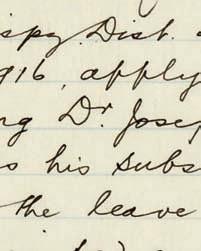 spy. Dist.
916, apply
ng Dr. Josep
s his subs
the leave